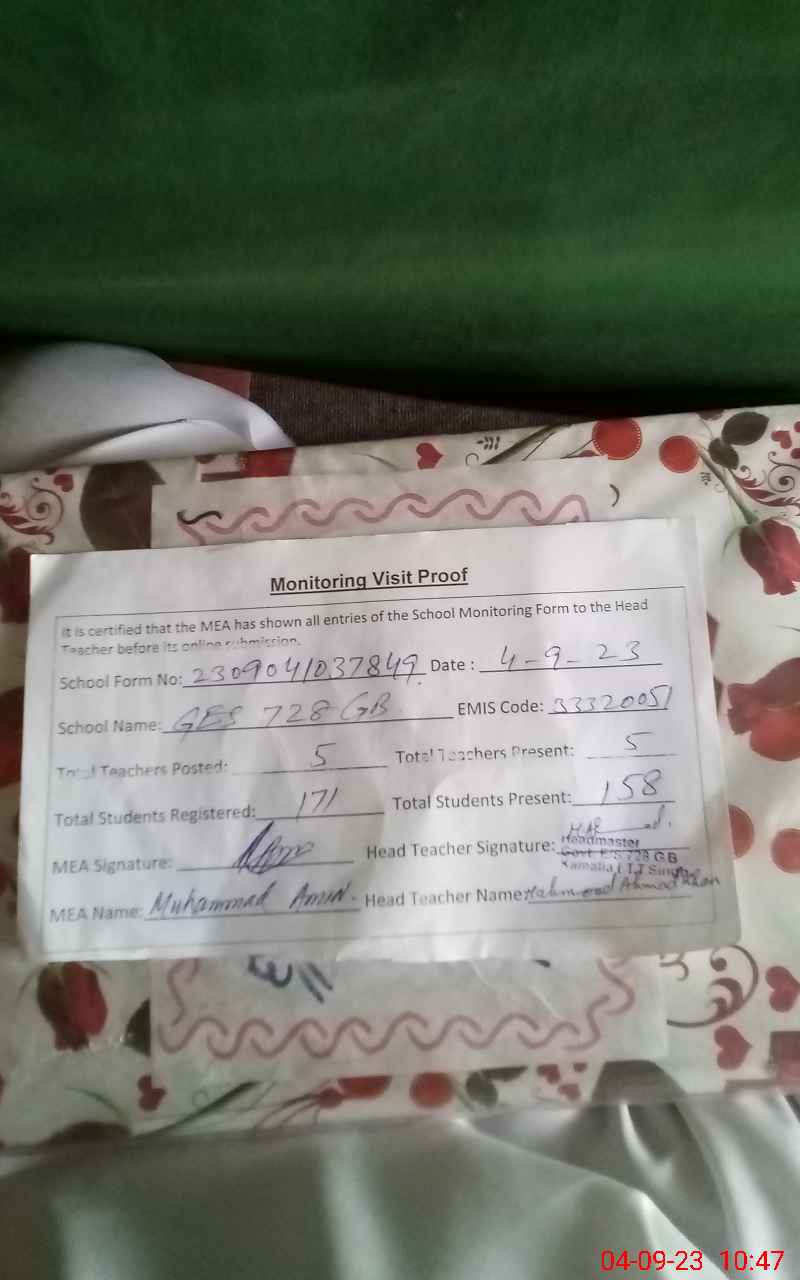 Monitoring Visit Proof
It is certified that the MEA has shown all entries of the School Monitoring Form to the Head
Teacher before its online submission.
School Form No: 2309041037849 Date : 4-9-23
School Name: GES 728 GB EMIS Code: 33320051
Total Teachers Posted: 5 Total Teachers Present: 5
Total Students Registered: 171 Total Students Present: 158
MEA Signature: Head Teacher Signature:
Headmaster
Govt. E/S 728 GB
Kamalia (T.T Singh)
MEA Name: Muhammad Amin. Head Teacher Name: Mahmood Ahmad Khan
04-09-23 10:47